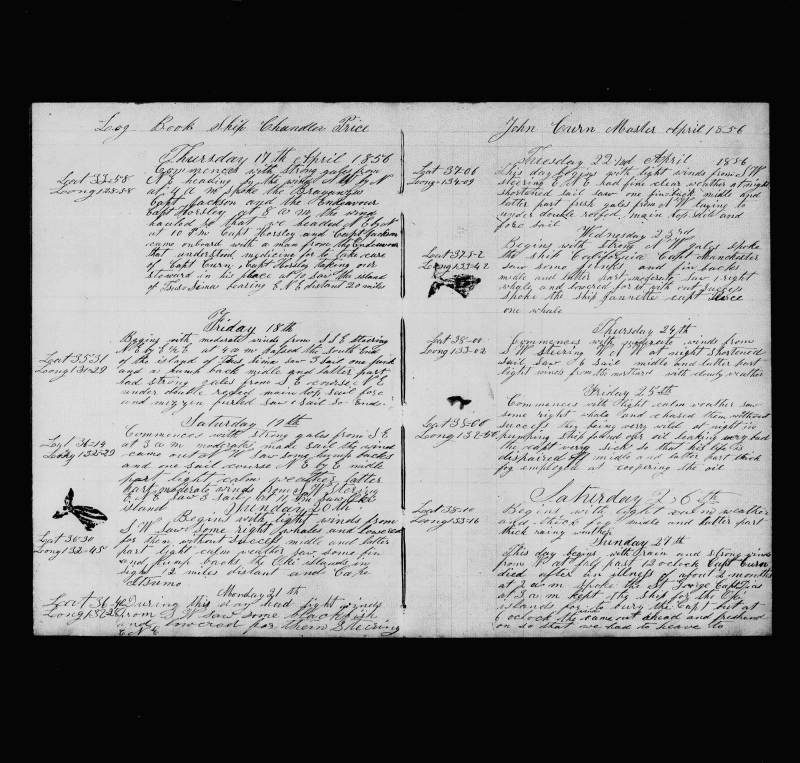 Log Book Ship Chandler Price
Thursday 17th April 1856
Lat 33-58
Long 128-58
Commences with strong gales from
heading by the wind
at 4 A M spoke the Braganza
Capt Jackson and the Endeavour
Capt Horsley at 8 a m the wind
hauled so that we headed
at 10 A M Capt Horsley and Capt Jackson
came onboard with a man from the Endeavour
that understood medicine for to take care
of Capt Curn Capt Horsley taking our
steward in his place at saw the island
of bearing E N E distant 20 miles
Friday 18th
Lat 35-31
Long 131-29
Begins with moderate winds from S S E steering
N E by E at passed the South End
of the island this time saw 5 sail one junk
and a hump back midle and latter part
had strong gales from S E course N E
under double reefed main top sail fore
and mizzen furled saw 1 sail
Saturday 19th
Lat 36-14
Long 132-29
Commences with strong gales from S E
at 3 a m moderates made sail the wind
came out at W saw some hump backs
and one sail course N E by E midle
part light calm weather latter
part moderate winds from W
saw 3 sail at saw
island Sunday 20th
Lat 36-30
Long 132-45
Begins with light winds from
S W saw some right whales and lowered
for them without success midle and latter
part light calm weather saw some fin
and hump backs by Oki islands in
sight 12 miles distant and Cape
Monday 21th
Lat 36-40
Long
During this day had light winds
from S W saw some black fish
and lowered for them Steering
John Curn Master April 1856
Tuesday 22nd April 1856
Lat 37-06
Long 134-09
This day begins with light winds from S W
steering E N E had fine clear weather at night
shortened sail saw one finback midle and
latter part fresh gales from N W laying to
under double reefed main top sail and
fore sail
Wednesday 23rd
Begins with strong N W gales spoke
the ship California Capt Manchester
saw some and fin backs
midle and latter part moderate saw 1 right
whale and lowered for it with out success
spoke the ship Jannette Capt
one whale
Thursday 24th
Lat 38-00
Long 133-02
Commences with moderate winds from
S W steering W N W at night shortened
sail saw 4 sail midle and latter part
light winds from the northard with cloudy weather
Friday 25th
Commences with light calm weather saw
some right whale and chased them without
success they being very wild at night in
pumping ship found our oil leaking very bad
the capt very sick so that his life is
dispaired off midle and latter part thick
fog employed at coopering the oil
Saturday 26th
Lat 38-10
Long 133-16
Begins with light rain weather
and thick fog midle and latter part
thick rainy weather
Sunday 27th
This day begins with rain and strong winds
from W at half past 12 oclock Capt Curn
died after an illness of about 2 months
at 2 a m spoke the St George Capt
at 3 a m kept the ship for the Oki
islands for to bury the Capt but at
6 oclock the came out ahead and freshend
on so that we had to heave to